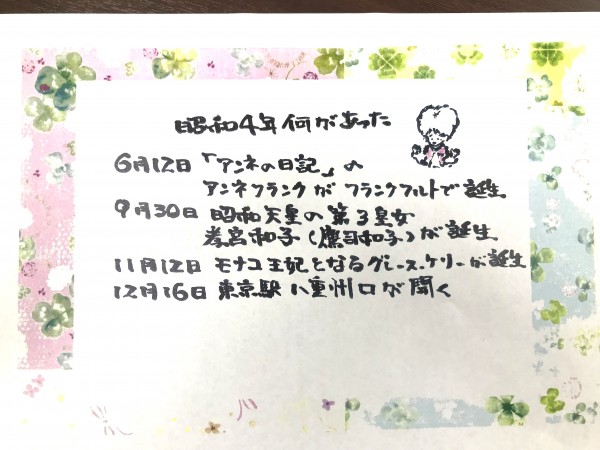 昭和4年何があった
6月12日「アンネの日記」の
アンネフランクがフランクフルトで誕生
9月30日 昭和天皇の第3皇女
孝宮和子(鷹司和子)が誕生
11月12日 モナコ王妃となるグレース.ケリーが誕生
12月16日 東京駅八重州口が開く